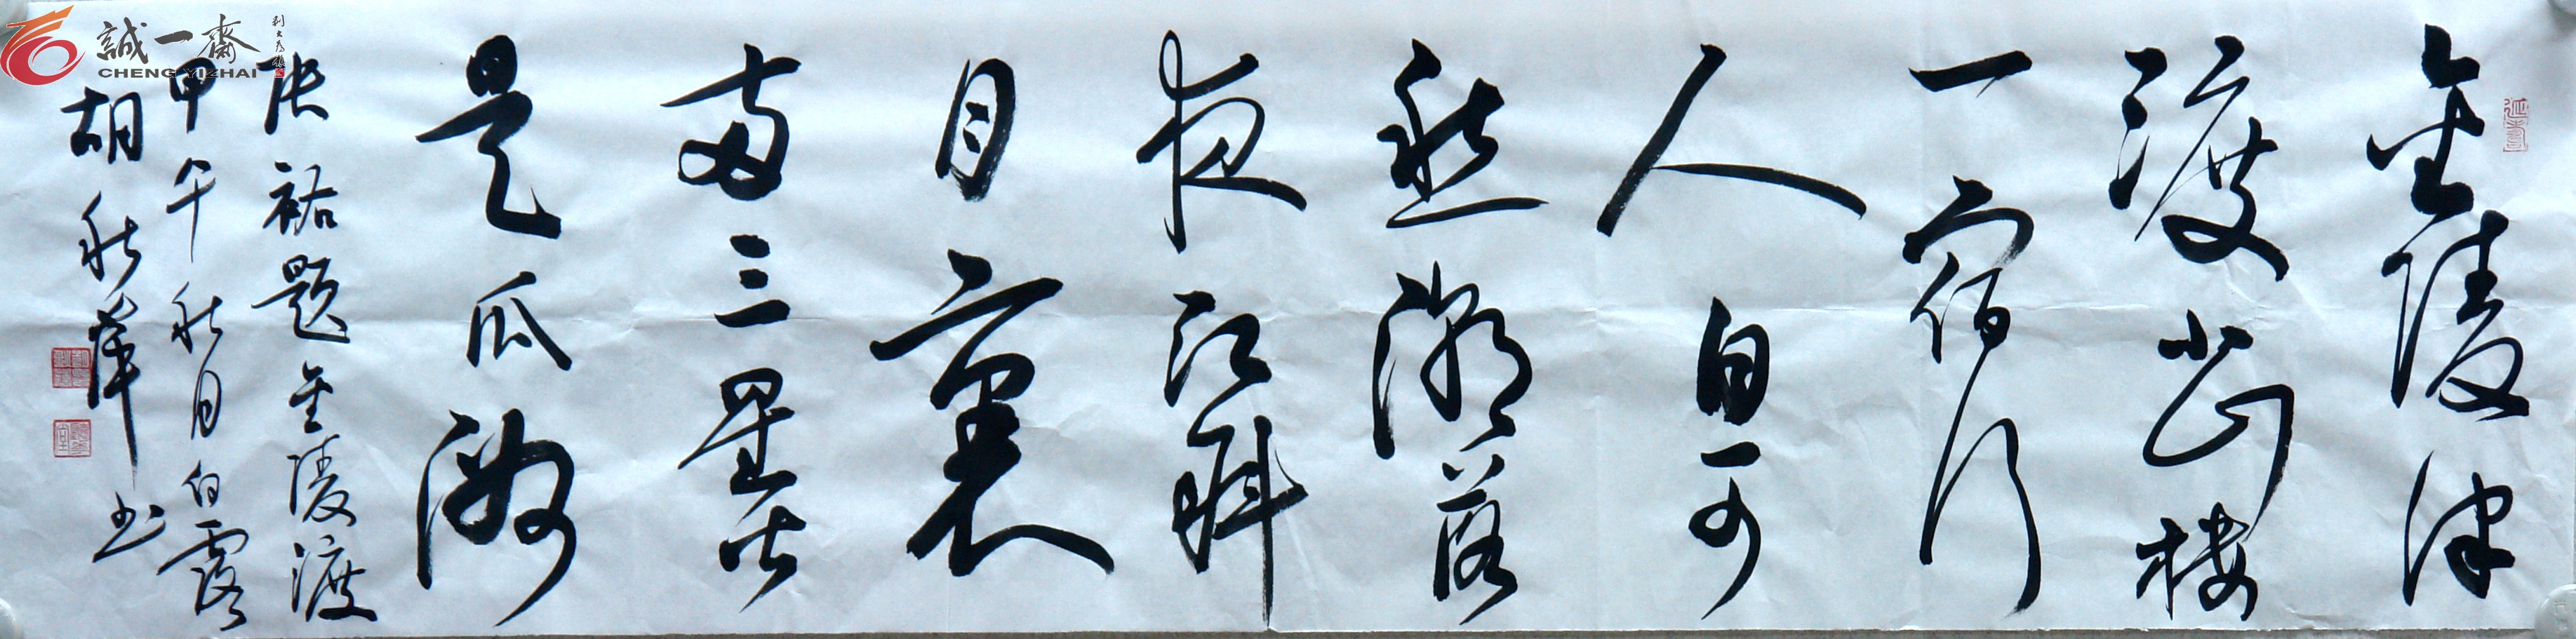 金陵津
渡小山楼
一宿行
人自可
愁潮落
夜江斜
月裏
两三星火
是瓜洲
张祜题金陵渡
甲午秋月白露
胡秋萍书
誠一齋
CHENG YIZHAI